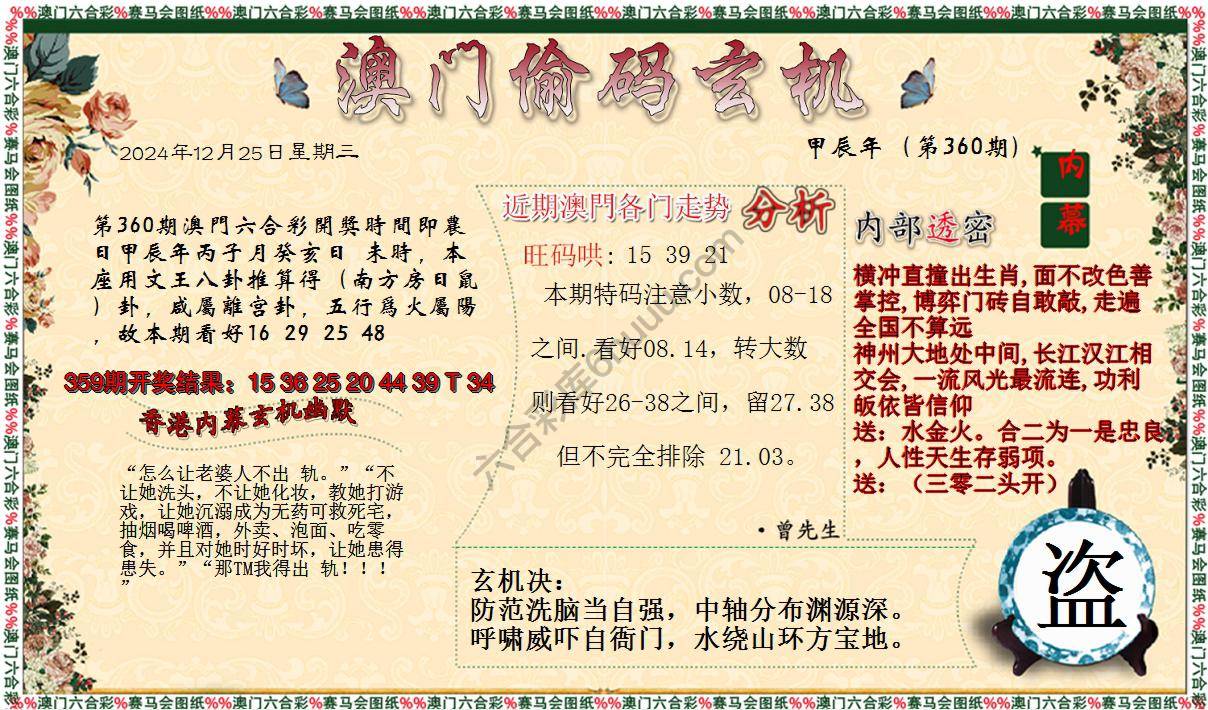 %%澳门六合彩%赛马会图纸%%澳门六合彩%赛马会图纸%%澳门六合彩%赛马会图纸%%澳门六合彩%赛马会图纸%%澳门六合彩%赛马会图纸%%澳门六合彩%赛马会图纸%%澳门六合彩%赛马会图纸
澳门偷码玄机
2024年12月25日星期三
甲辰年（第360期）
第360期澳門六合彩開獎時間即農
日甲辰年丙子月癸亥日 未時，本
座用文王八卦推算得（南方房日鼠
）卦，咸屬離宫卦，五行爲火屬陽
，故本期看好16 29 25 48
359期开奖结果：15 36 25 20 44 39 T 34
香港内幕玄机幽默
“怎么让老婆人不出 轨。”“不
让她洗头，不让她化妆，教她打游
戏，让她沉溺成为无药可救死宅，
抽烟喝啤酒，外卖、泡面、吃零
食，并且对她时好时坏，让她患得
患失。”“那TM我得出 轨！！！
”
近期澳門各门走勢 分析
旺码哄: 15 39 21
本期特码注意小数，08-18
之间.看好08.14，转大数
则看好26-38之间，留27.38
但不完全排除 21.03。
·曾先生
内幕
内部透密
横冲直撞出生肖,面不改色善
掌控,博弈门砖自敢敲,走遍
全国不算远
神州大地处中间,长江汉江相
交会,一流风光最流连,功利
皈依皆信仰
送：水金火。合二为一是忠良
，人性天生存弱项。
送：（三零二头开）
玄机决：
防范洗脑当自强，中轴分布渊源深。
呼啸威吓自衙门，水绕山环方宝地。
盗
%%澳门六合彩%赛马会图纸%%澳门六合彩%赛马会图纸%%澳门六合彩%赛马会图纸%%澳门六合彩%赛马会图纸%%澳门六合彩%赛马会图纸%%澳门六合彩%赛马会图纸%%澳门六合彩%赛马会图纸